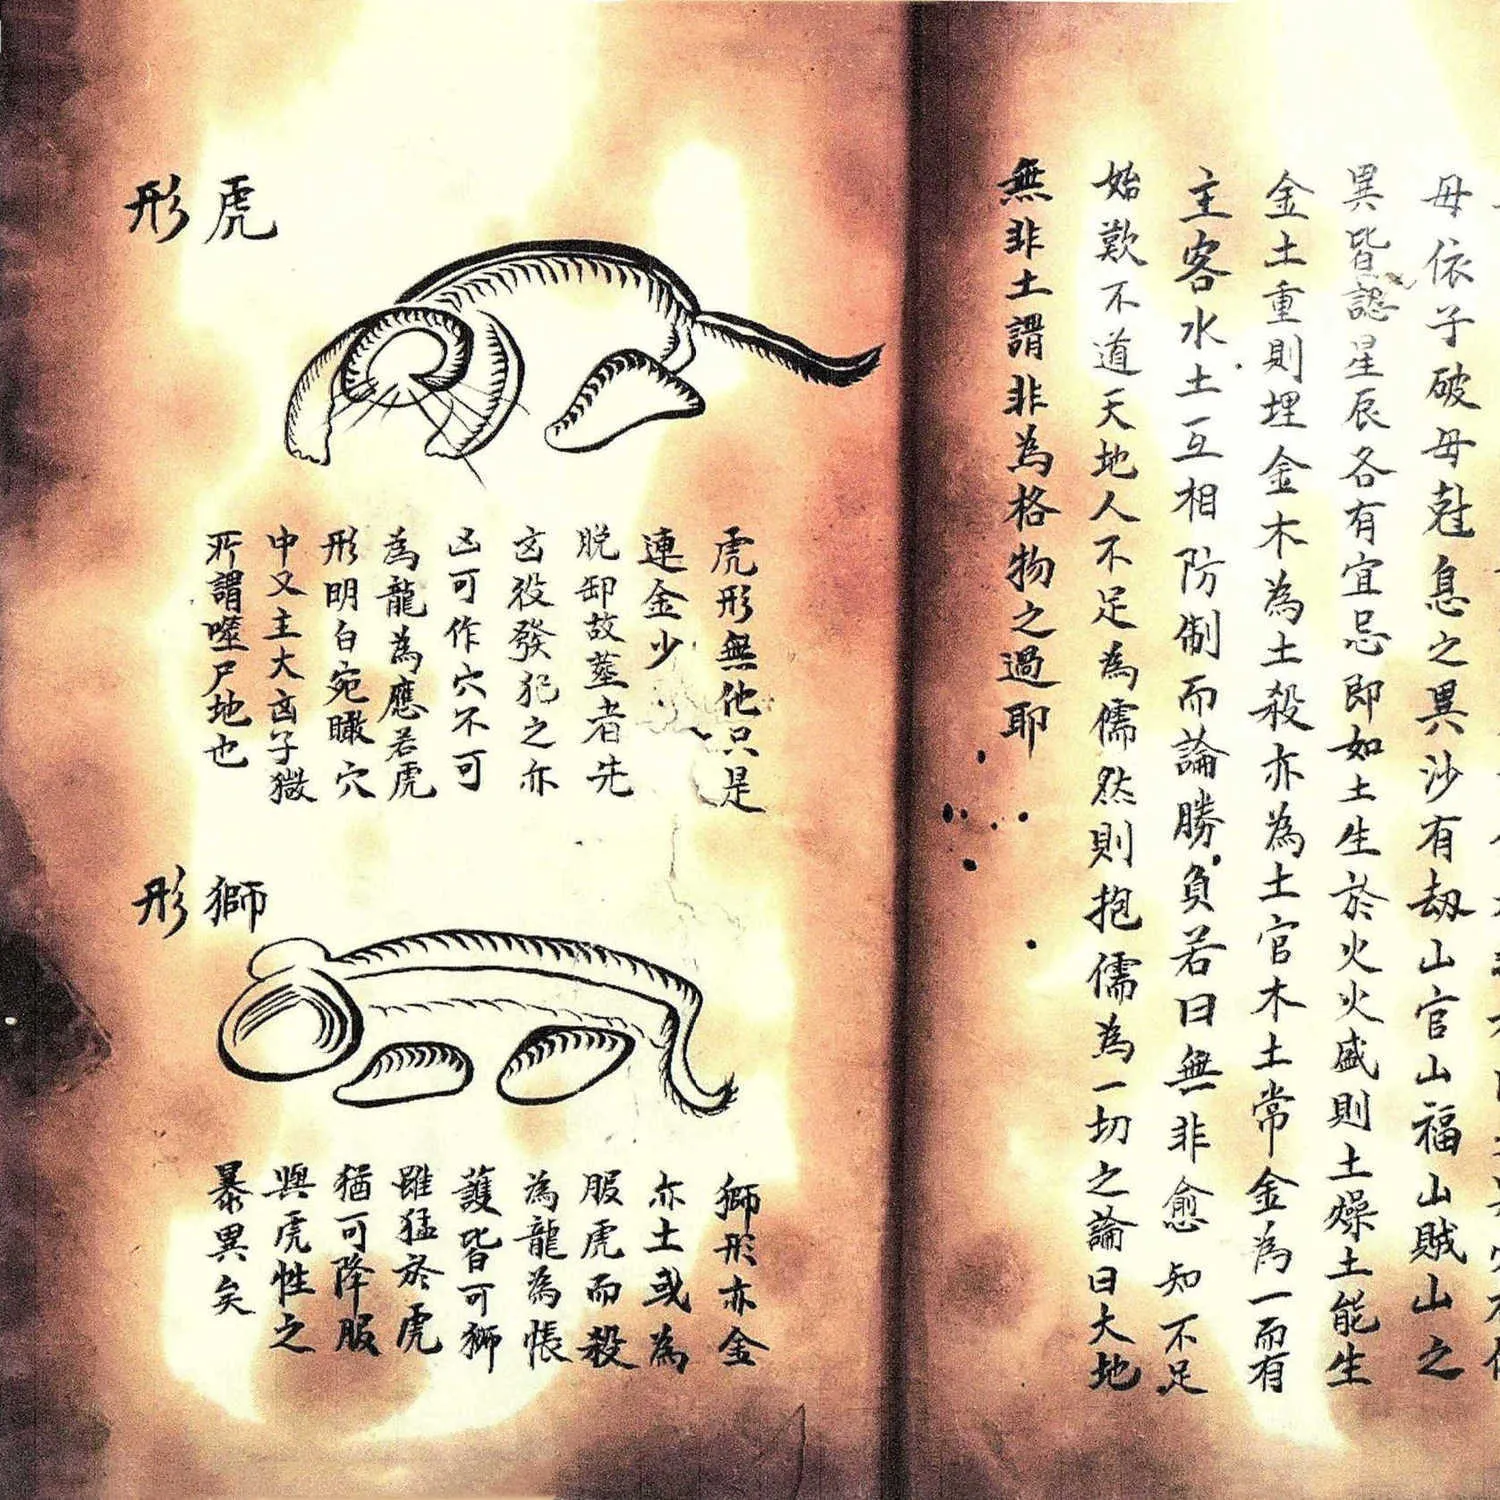 母依子破母尅息之異沙有劫山官山福山賊山之
異皆認星辰各有宜忌即如土生於火火盛則土燥土能生
金土重則埋金木為土殺亦為土官木土常金為一而有
主客水土互相防制而論勝負若曰無非愈知不足
始歎不道天地人不足為儒然則抱儒為一切之論曰大地
無非土謂非為格物之過耶
虎
形
虎形無他只是
連金少
脫卸故塟者先
玄役發犯之亦
凶可作穴不可
為龍為應若虎
形明白宛瞰穴
中又主大凶子
所謂噬尸地也
獅
形
獅形亦金
亦土或為
服虎而殺
為龍為帳
護皆可獅
雖猛於虎
猶可降服
與虎性之
暴異矣